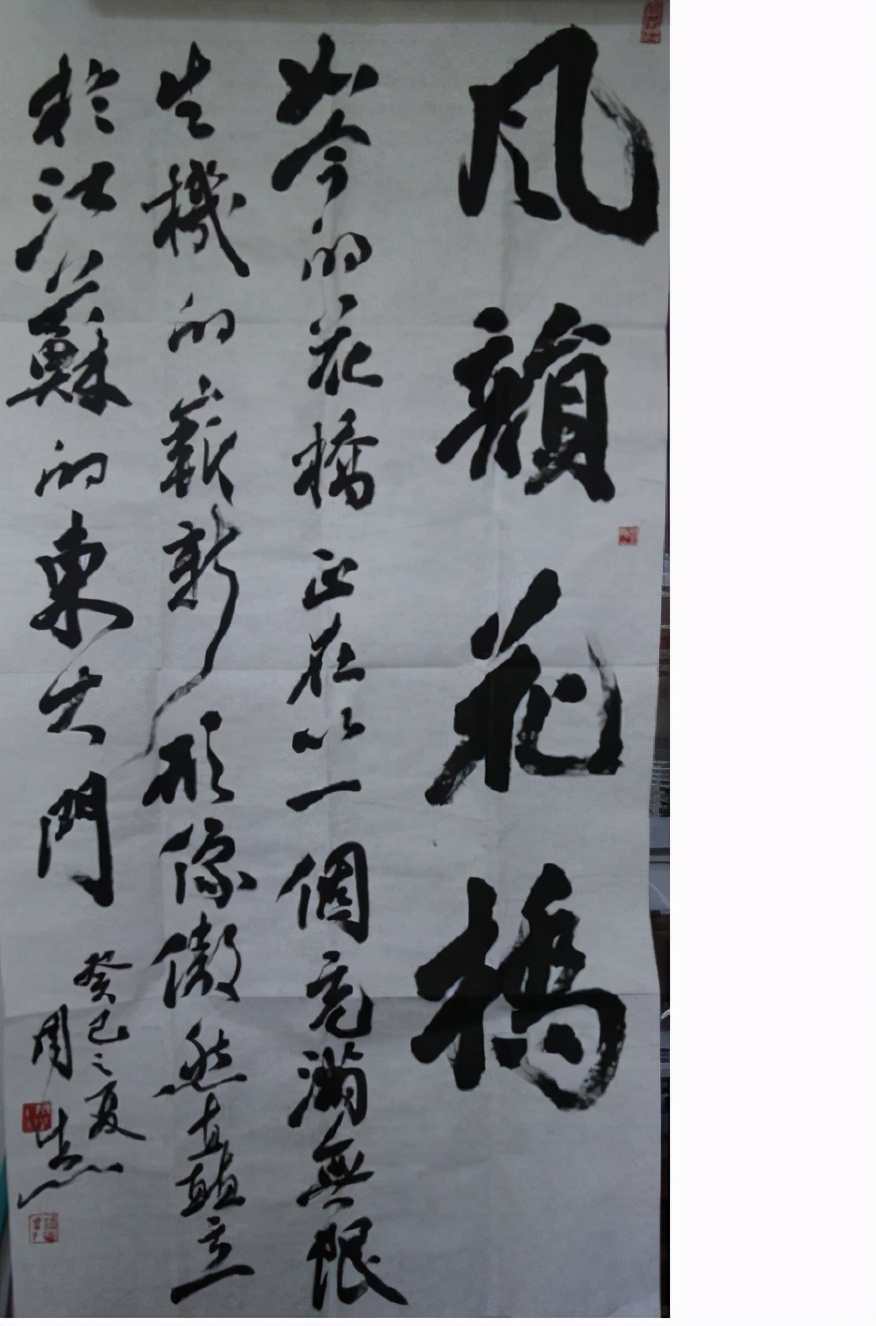 风韻花橋
如今的花橋正在以一個充滿無限
生機的嶄新形像傲然直矗立
於江蘇的東大門
癸巳之夏
周